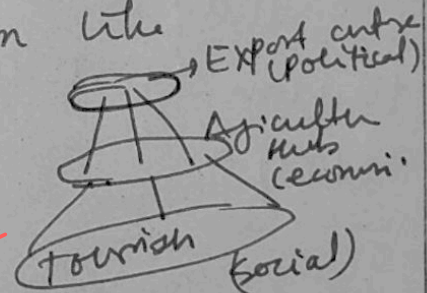 like
Export centre
(political)
Agriculture
Hub
(economi.
Tourish
(social)